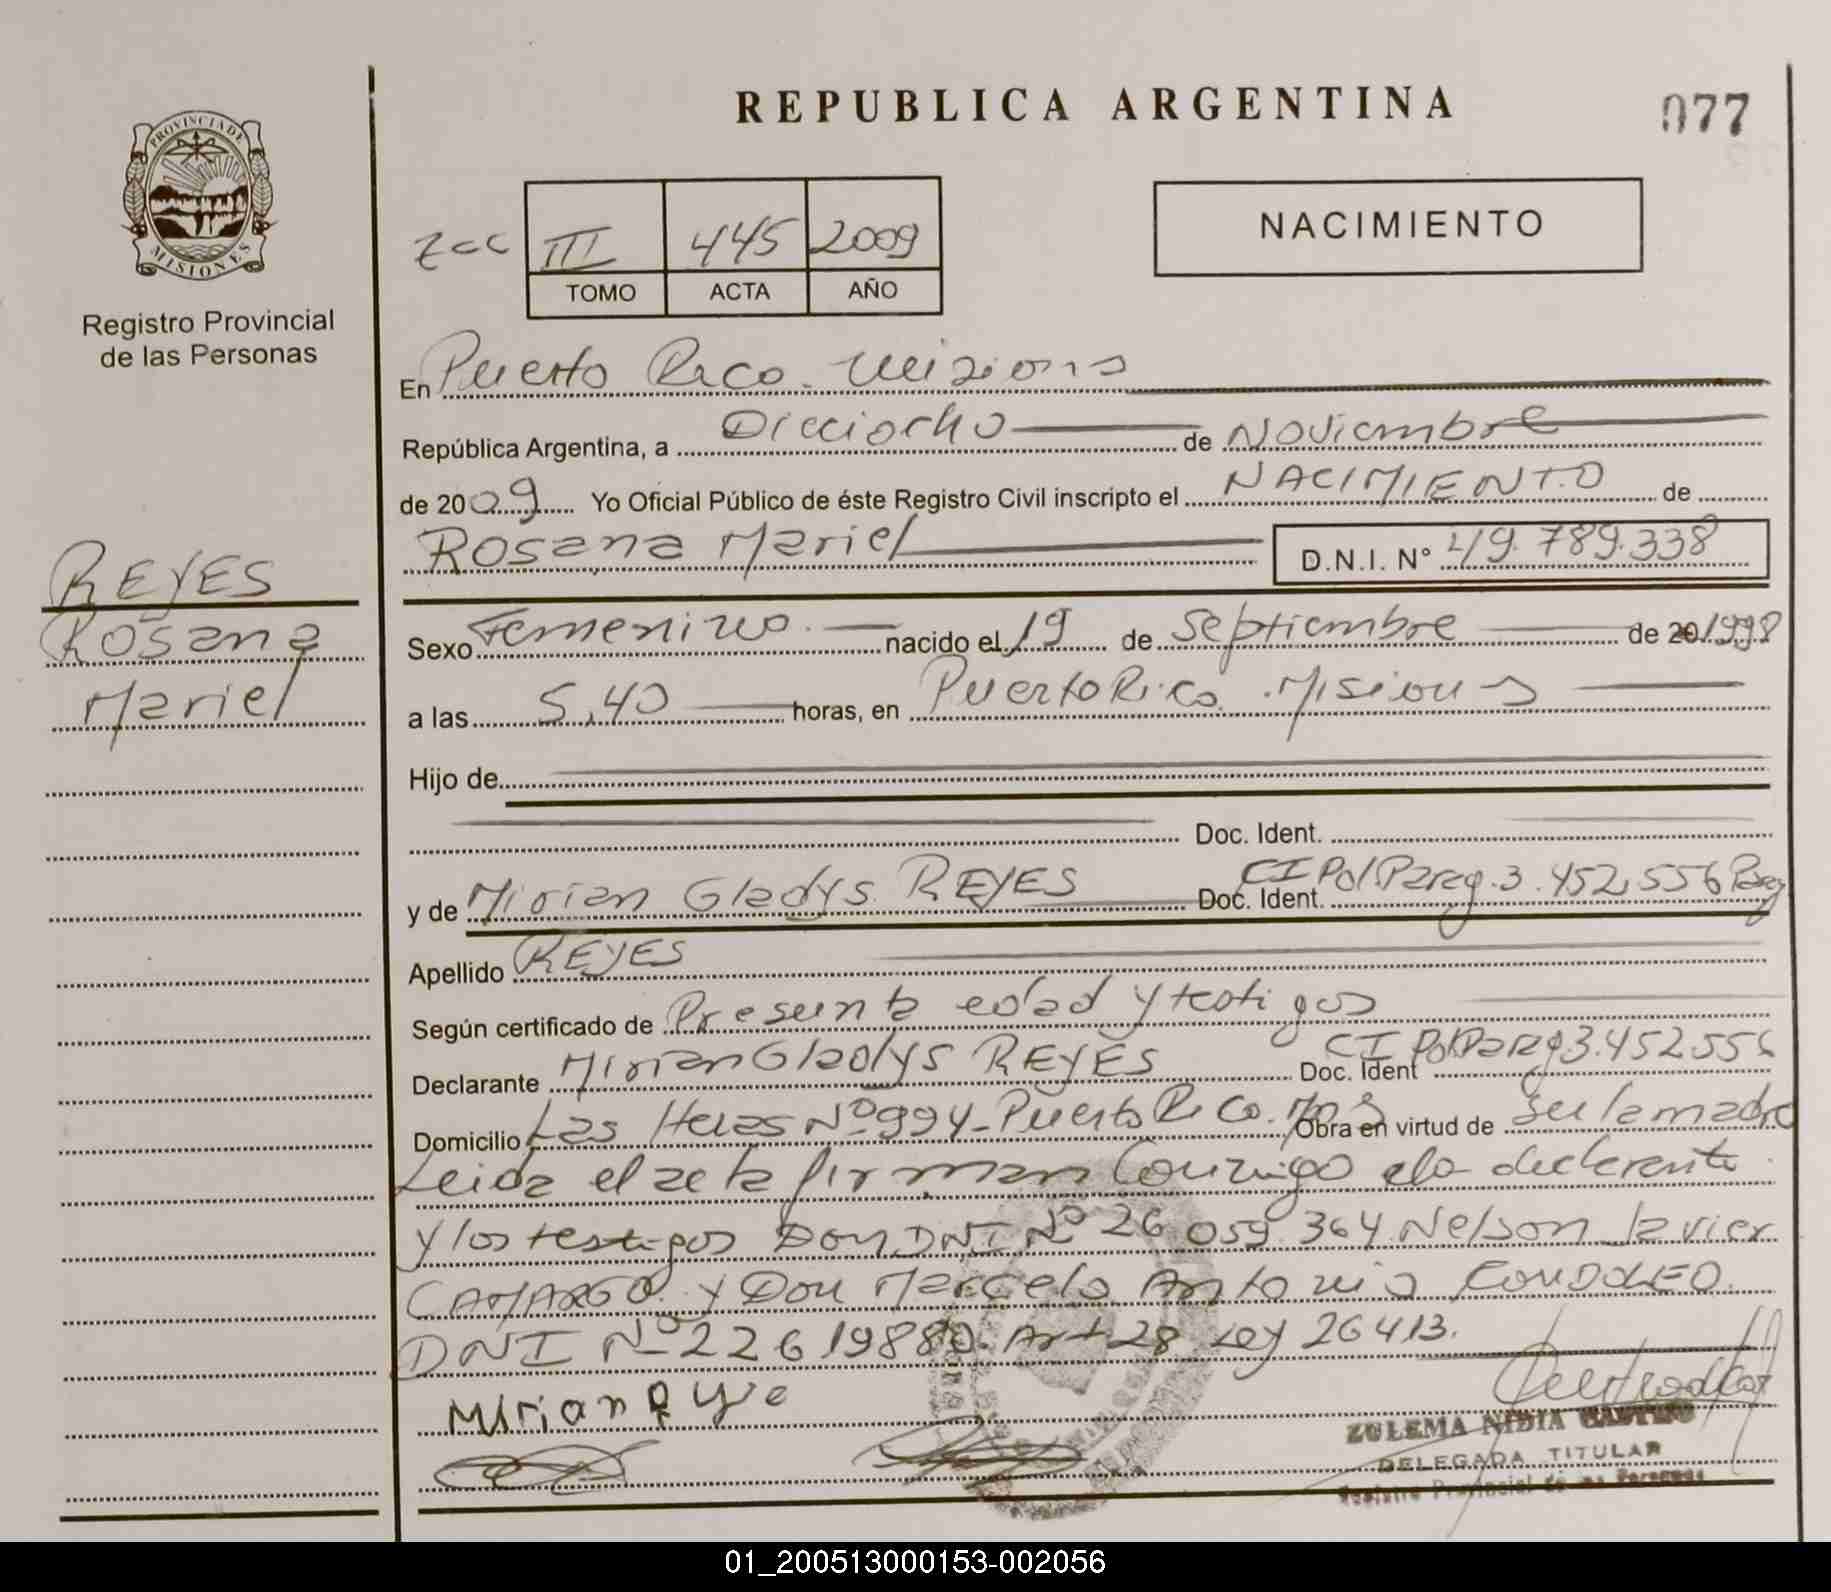 REPUBLICA ARGENTINA
077
PROVINCIA DE
MISIONES
Registro Provincial
de las Personas
III 445 2009
TOMO ACTA AÑO
NACIMIENTO
En Puerto Rico. Misiones
República Argentina, a Dieciocho de Noviembre
de 2009 Yo Oficial Público de éste Registro Civil inscripto el NACIMIENTO de
Rosana Mariel D.N.I. N° 49.789.338
REYES
Rosana
Mariel
Sexo Femenino. nacido el 19 de Septiembre de 20 1998
a las 5,40 horas, en Puerto Rico. Misiones
Hijo de
Doc. Ident.
y de Mirian Gladys REYES Doc. Ident. CI Pol. Parag. 3.452.556 Parag
Apellido REYES
Según certificado de Presunta edad y testigos
Declarante Mirian Gladys REYES Doc. Ident CI Pol Parag 3.452.556
Domicilio Las Heras Nº 994-Puerto Rico. Mnes Obra en virtud de ser la madre
Leida el acta firman conmigo la declarante
y los testigos Don DNI Nº 26.059.364 Nelson Javier
CAMARGO. y Don Marcelo Antonio
DNI Nº 22619880. Art 28 Ley 26413.
Mirian Reye
ZULEMA NIDIA
DELEGADA TITULAR
Registro Provincial de las Personas
01_200513000153-002056